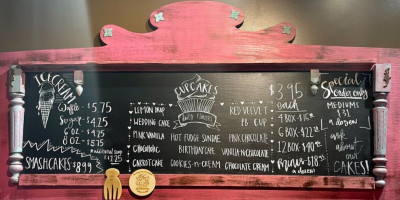 ICE CREAM
Waffle $5.75
Sugar $4.25
6oz $4.25
8oz $5.75
Additional scoop $1.25
SMASHCAKES $8.99
CUPCAKES
daily flavors
LEMON DROP
WEDDING CAKE
PINK VANILLA
CHOCOHOLIC
CARROT CAKE
HOT FUDGE SUNDAE
BIRTHDAY CAKE
COOKIES-N-CREAM
RED VELVET
PB CUP
PINK CHOCOLATE
VANILLA-N-CHOCOLATE
CHOCOLATE CREAM
$3.95
each
4 BOX
6 BOX $22
12 BOX
MINIS $18
a dozen
Special Order only
MEDIUMS
a dozen
ask
about
our
CAKES!